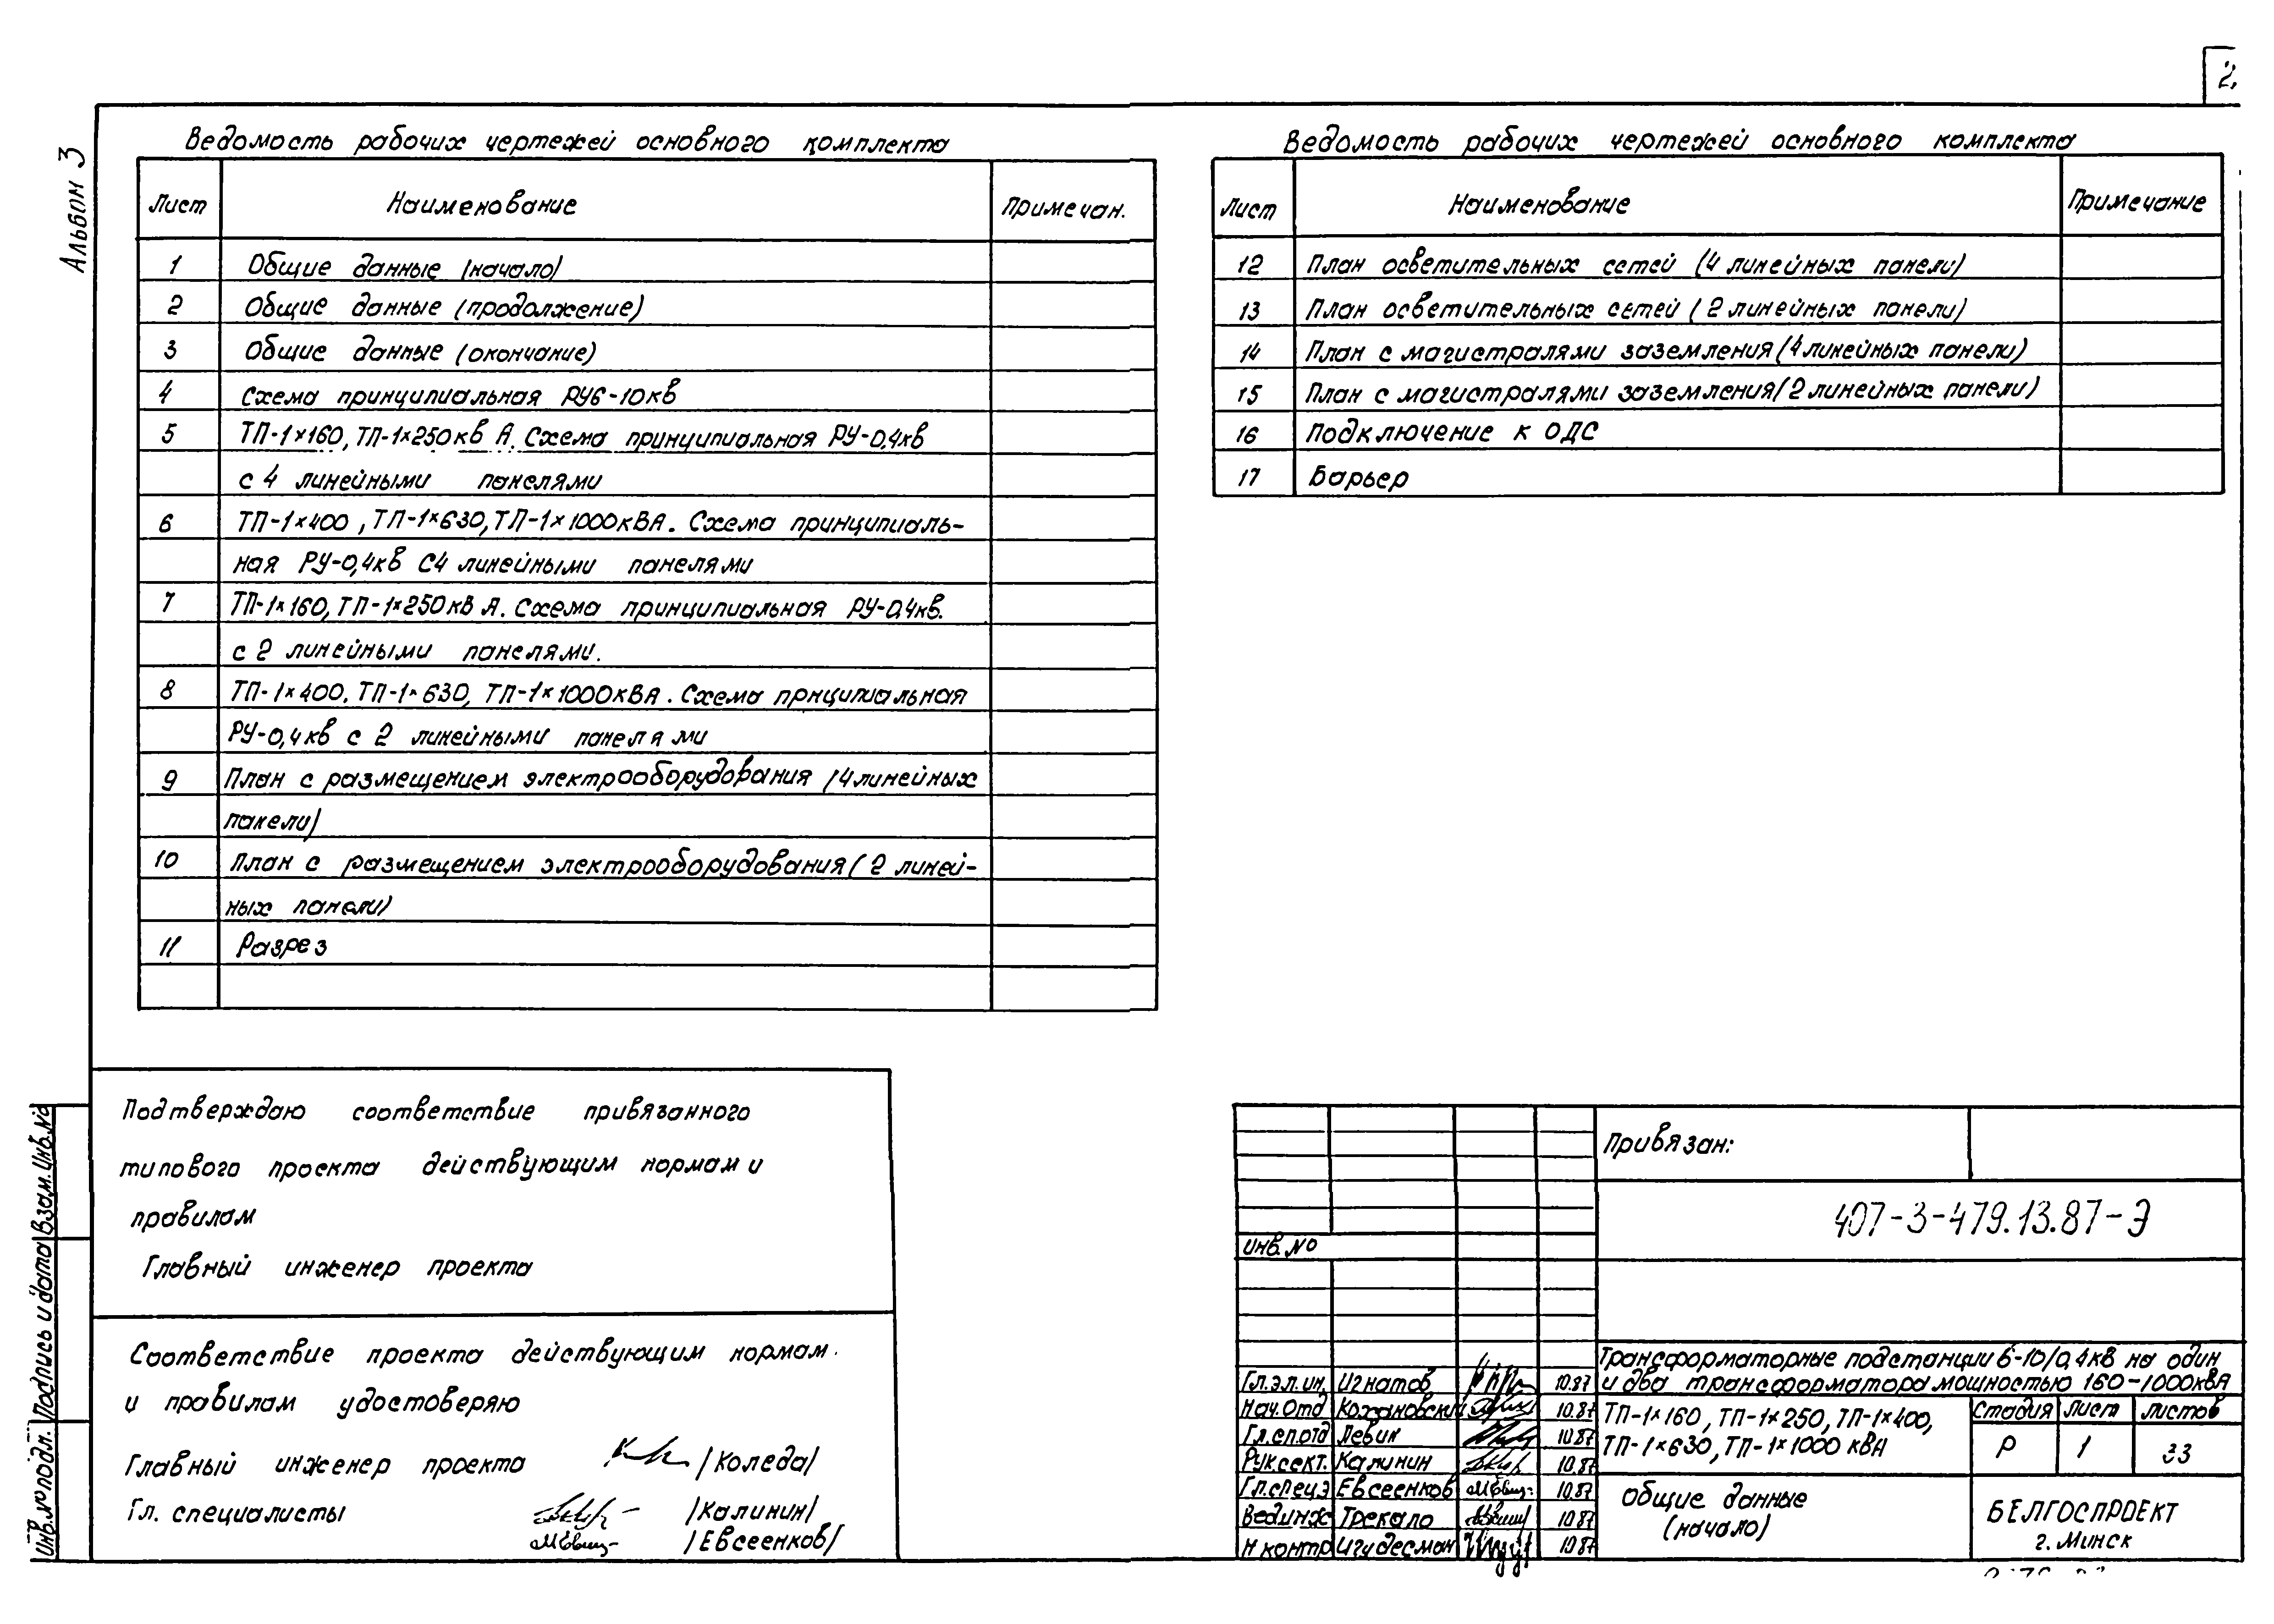 2.
Альбом 3
Ведомость рабочих чертежей основного комплекта
Лист Наименование Примечан.
1 Общие данные (начало)
2 Общие данные (продолжение)
3 Общие данные (окончание)
4 Схема принципиальная РУ6-10кв
5 ТП-1×160, ТП-1×250кв А. Схема принципиальная РУ-0,4кв
с 4 линейными панелями
6 ТП-1×400, ТП-1×630, ТП-1×1000кВА. Схема принципиаль-
ная РУ-0,4кв С4 линейными панелями
7 ТП-1×160, ТП-1×250кв А. Схема принципиальная РУ-0,4кв.
с 2 линейными панелями.
8 ТП-1×400. ТП-1×630, ТП-1×1000кВА. Схема прнципиальная
РУ-0,4кв с 2 линейными панелями
9 План с размещением электрооборудования (4 линейных
панели)
10 План с размещением электрооборудования (2 линей-
ных панели)
11 Разрез
Ведомость рабочих чертежей основного комплекта
Лист Наименование Примечание
12 План осветительных сетей (4 линейных панели)
13 План осветительных сетей (2 линейных панели)
14 План с магистралями заземления (4 линейных панели)
15 План с магистралями заземления (2 линейных панели)
16 Подключение к ОДС
17 Барьер
Подтверждаю соответствие привязанного
типового проекта действующим нормам и
правилам
Главный инженер проекта
Соответствие проекта действующим нормам.
и правилам удостоверяю
Главный инженер проекта /Коледа/
Гл. специалисты /Калинин/
/Евсеенков/
Инв.№ подл. Подпись и дата Взам. Инв.№
Привязан:
407-3-479.13.87-Э
Инв.№
Трансформаторные подстанции 6-10/0,4кв на один
и два трансформатора мощностью 160-1000кВА
Гл.эл.ин. Игнатов 10.87
Нач.Отд Кохановский 10.87
Гл.сп.отд Левин 10.87
Рук.сект. Калинин 10.87
Гл.спец.э Евсеенков 10.87
Вед.инж Трекало 10.87
Н контр Игудесман 10.87
ТП-1×160, ТП-1×250, ТП-1×400,
ТП-1×630, ТП-1×1000 кВА
Стадия Лист Листов
Р 1 33
Общие данные
(начало)
БЕЛГОСПРОЕКТ
г. Минск